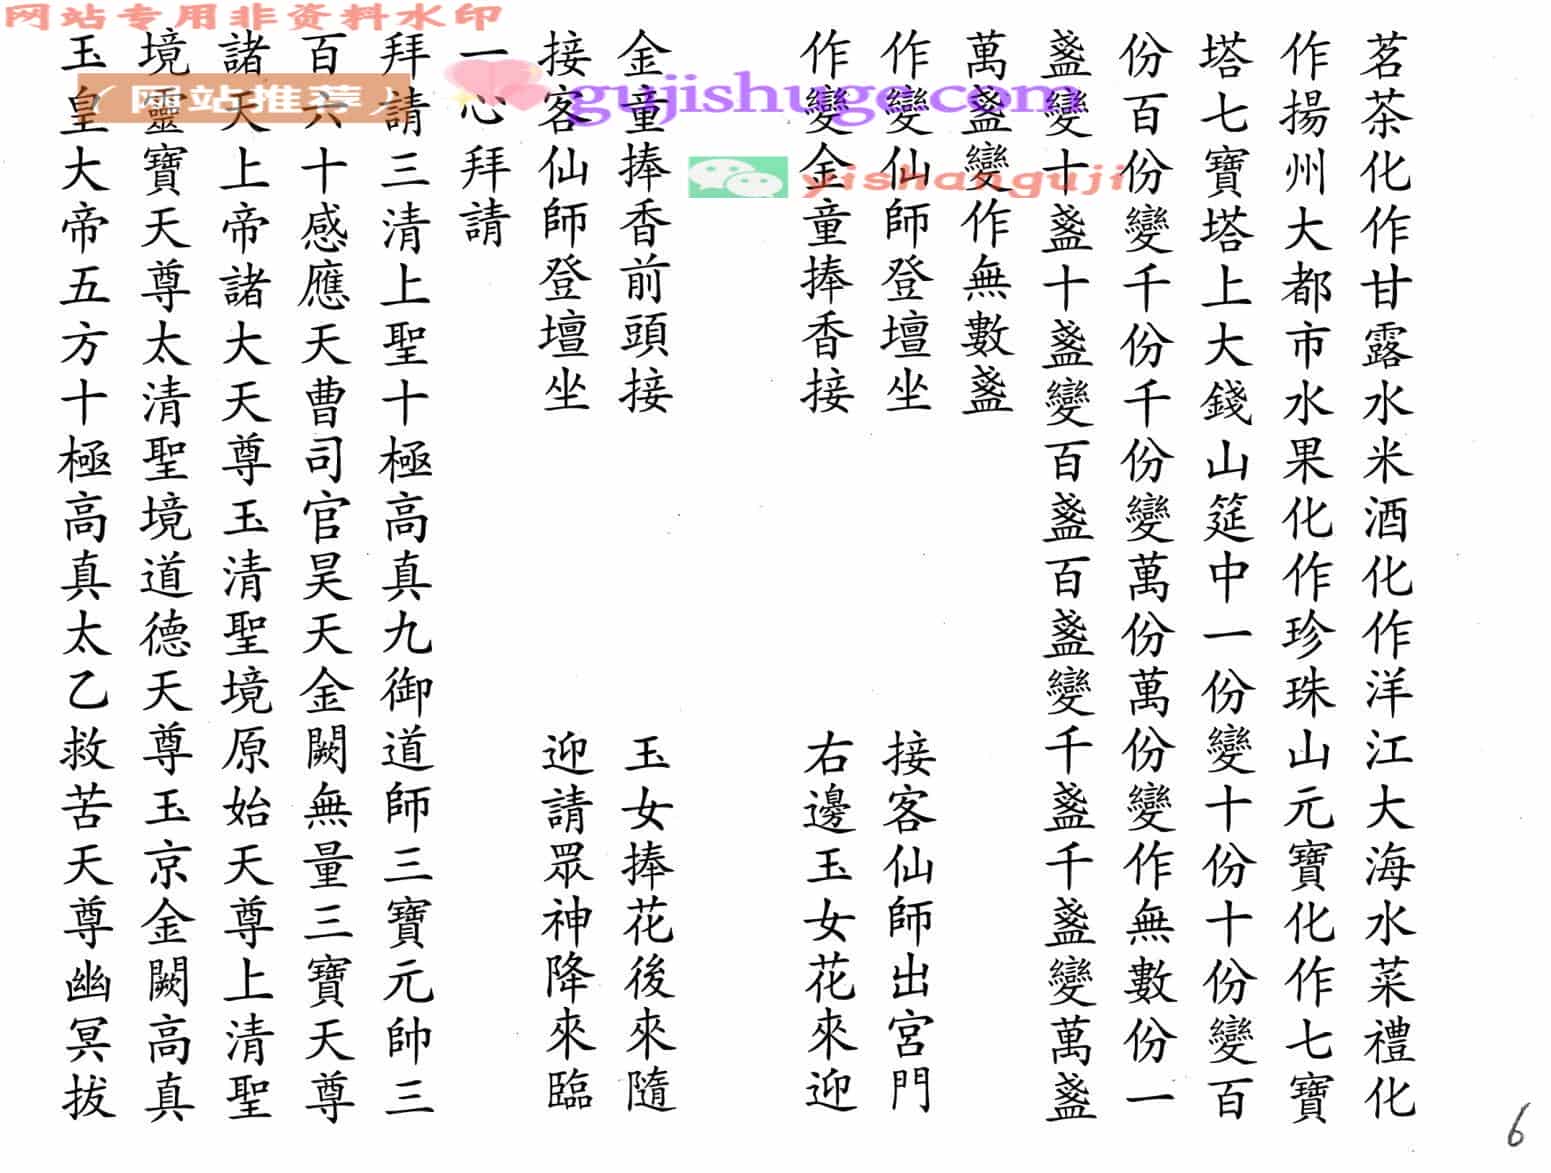 网站专用非资料水印
（网站推荐）
gujishuge.com
yishanguji
茗茶化作甘露水米酒化作洋江大海水菜禮化
作揚州大都市水果化作珍珠山元寶化作七寶
塔七寶塔塔上大錢山筵中一份變十份十份變百
份百份變千份千份變萬份萬份變作無數份一
盞變十盞十盞變百盞百盞變千盞千盞變萬盞
萬盞變作無數盞
作變仙師登壇坐 接客仙師出宮門
作變金童捧香接 右邊玉女花來迎
金童捧香前頭接 玉女捧花後來隨
接客仙師登壇坐 迎請眾神降來臨
一心拜請
拜請三清上聖十極高真九御道師三寶元帥三
百六十感應天曹司官昊天金闕無量三寶天尊
諸天上帝諸大天尊玉清聖境原始天尊上清聖
境靈寶天尊太清聖境道德天尊玉京金闕高真
玉皇大帝五方十極高真太乙救苦天尊幽冥拔
6